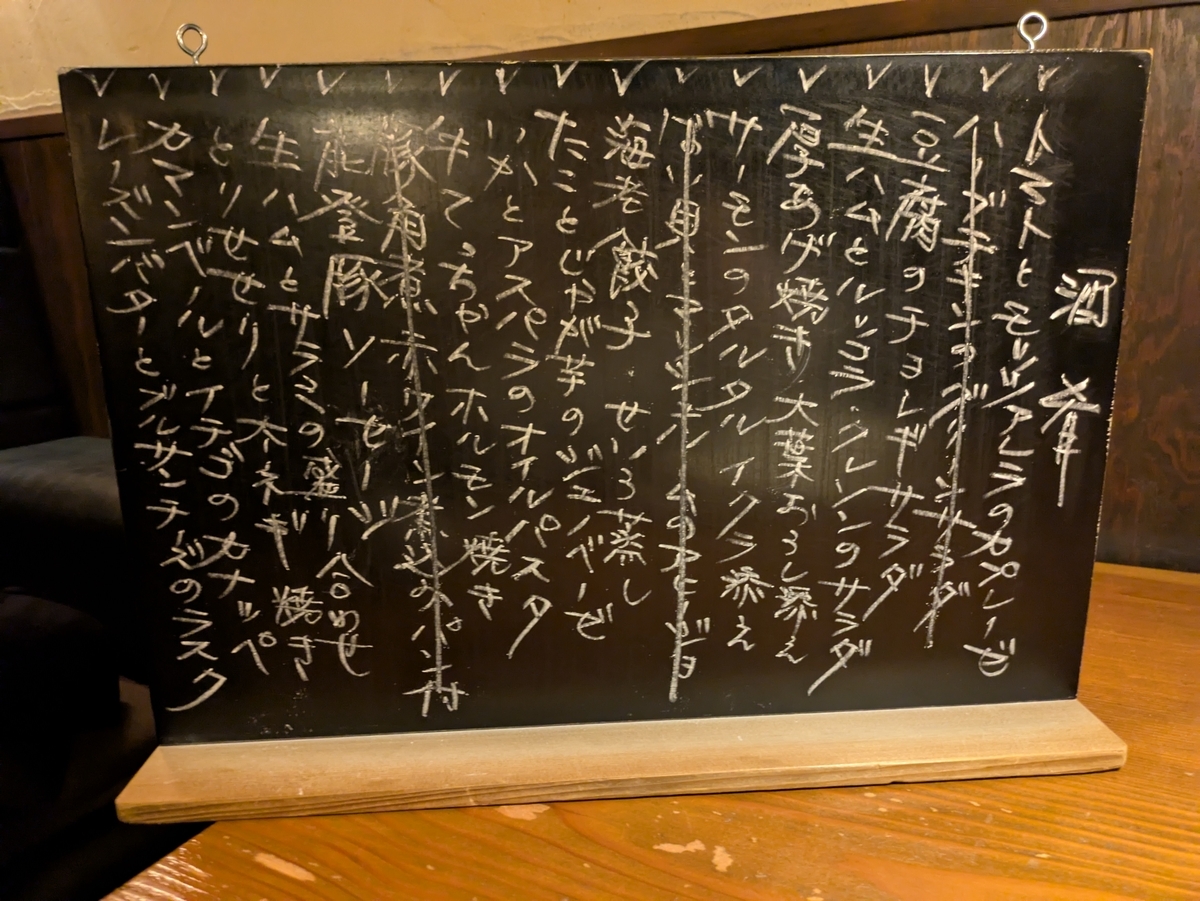 酒肴
トマトとモッツアレラのカプレーゼ
豆腐のチョレギサラダ
生ハムとルッコラ・クレソンのサラダ
厚あげ焼き 大葉おろし添え
サーモンのタルタル イクラ添え
マッシュルームのアヒージョ
海老餃子・せいろ蒸し
たことじゃが芋のジェノベーゼ
いかとアスパラのオイルパスタ
牛てっちゃんホルモン焼き
豚角煮 赤ワイン煮込み パン付
能登豚ソーセージ
生ハムとサラミの盛り合わせ
とりせせりと太ネギ焼き
カマンベールとイチゴのカナッペ
レーズンバターとブルサンチーズのラスク